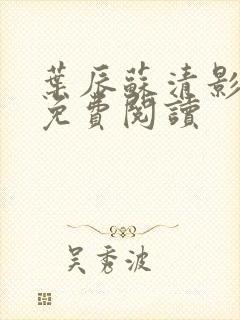 葉辰蘇清影
免費閱讀
吴秀波